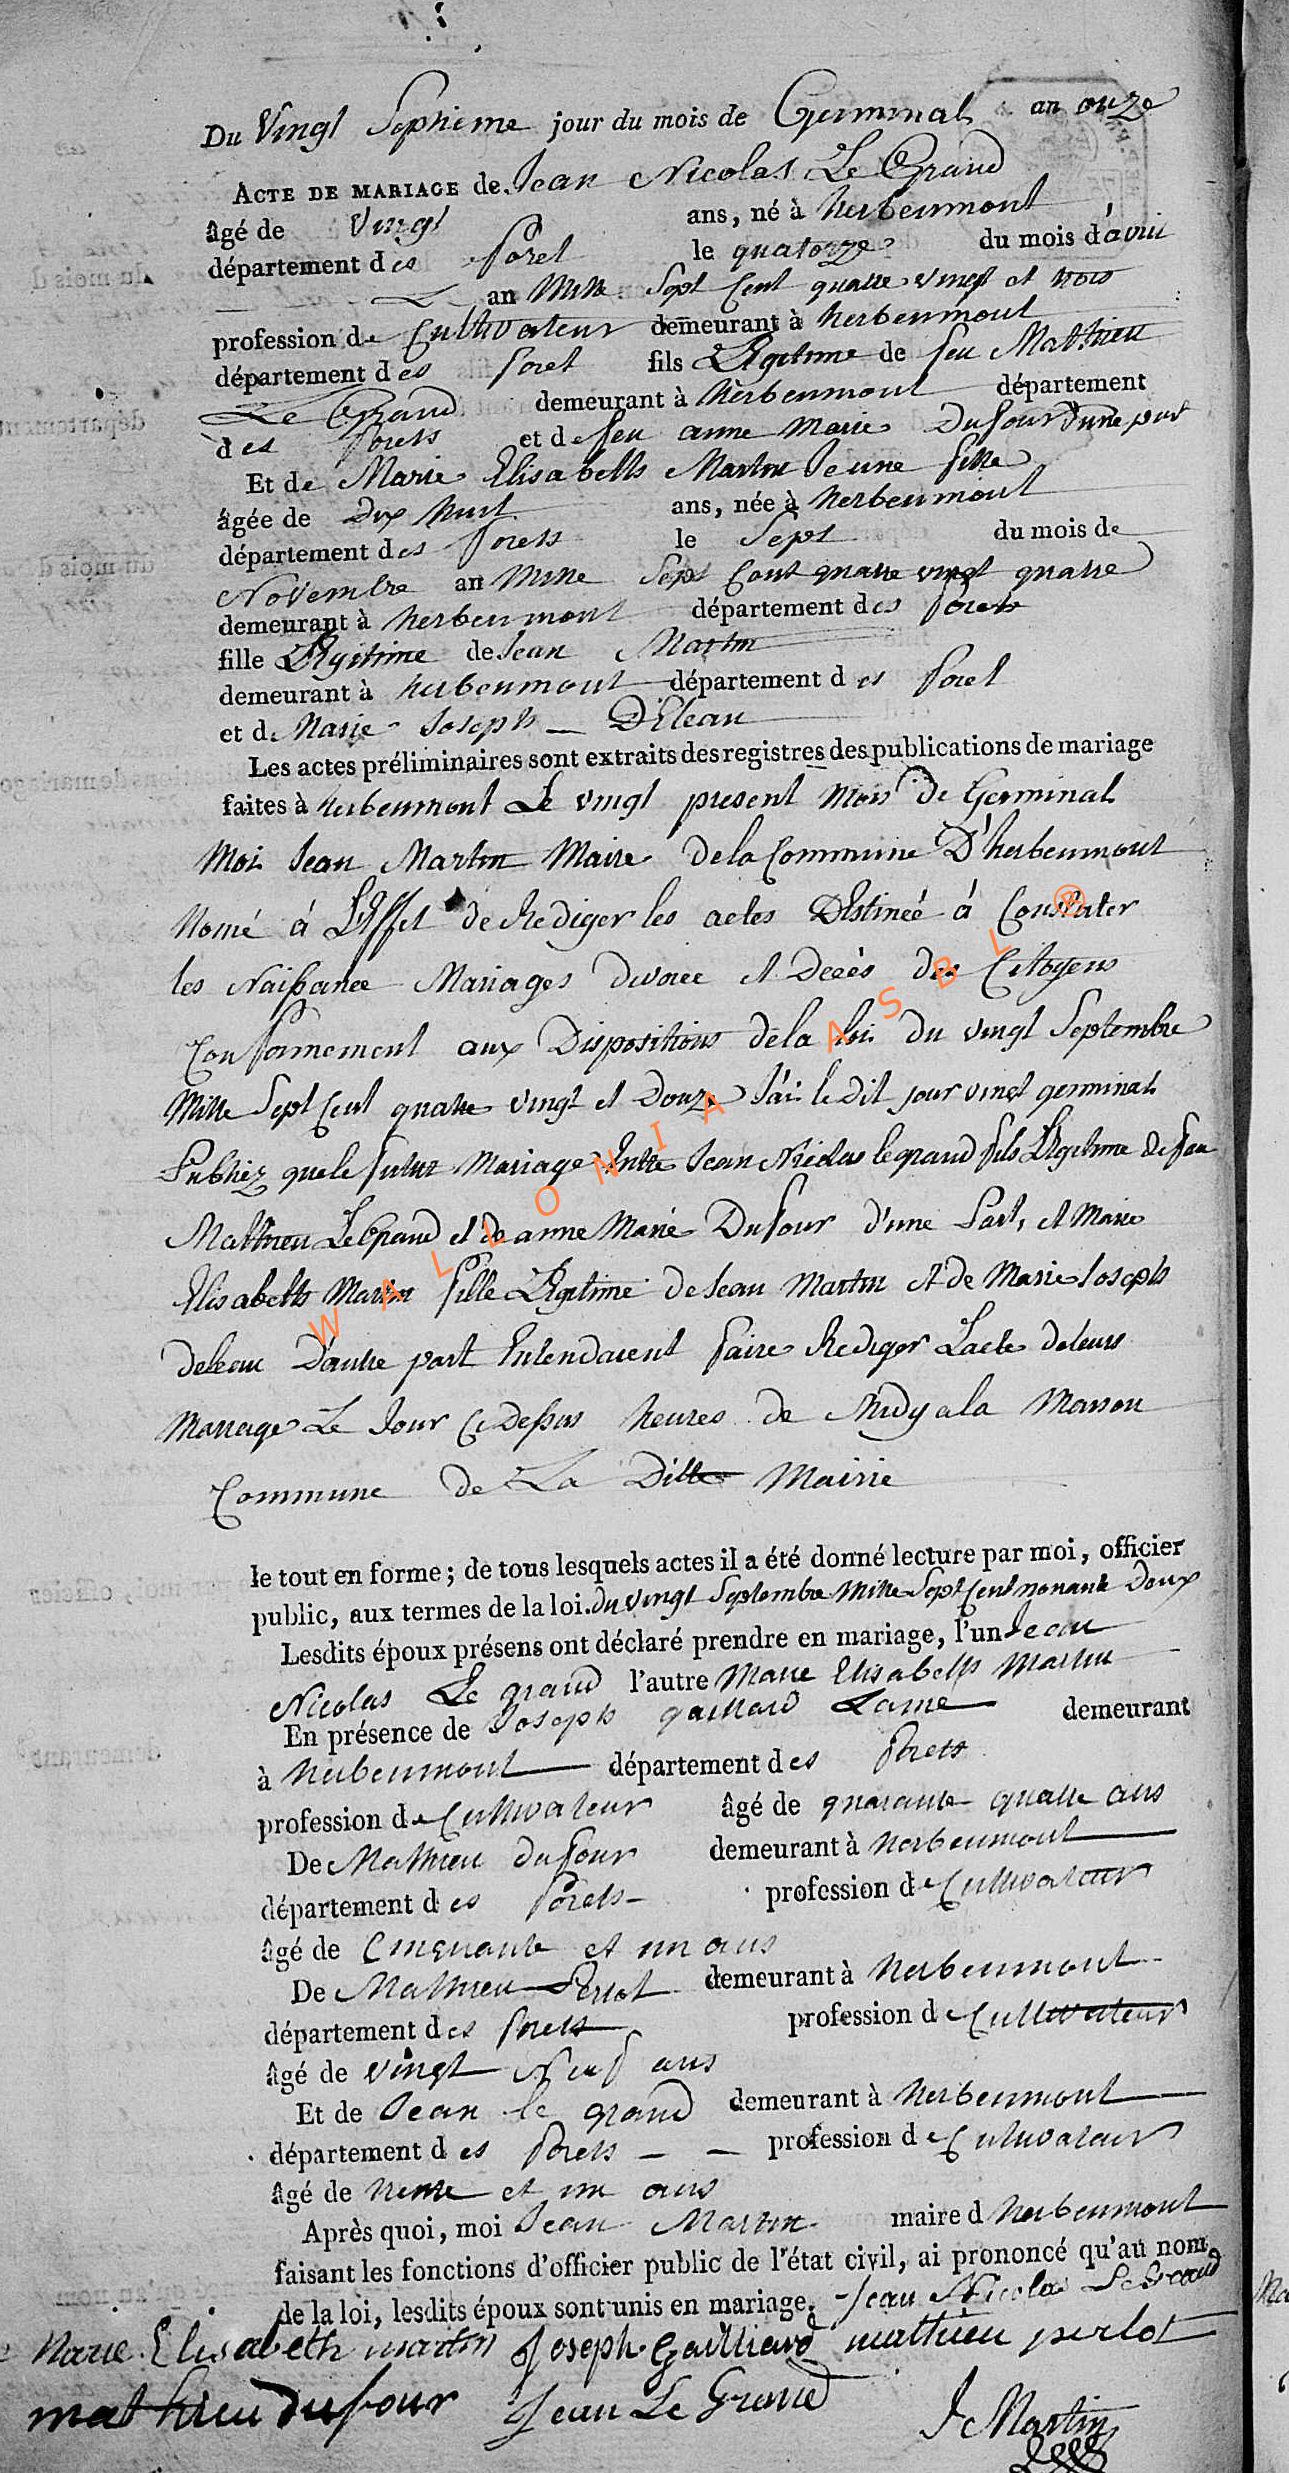 Du Vingt Septieme jour du mois de Germinal an onze
ACTE DE MARIAGE de Jean Nicolas Le Grand
âgé de Vingt ans, né à herbeumont
département des foret le quatorze du mois d'avril
an Mille Sept Cent quatre vingt et trois
profession de Cultivateur demeurant à herbeumont
département des foret fils Légitime de feu Mathieu
Le Grand demeurant à herbeumont département
des forets et de feu anne Marie Dufour d'une part
Et de Marie Elisabeth Martin Jeune fille
âgée de Dix huit ans, née à herbeumont
département des forets le Sept du mois de
Novembre an Mille Sept Cent quatre vingt quatre
demeurant à herbeumont département des forets
fille Légitime de Jean Martin
demeurant à herbeumont département des foret
et de Marie Joseph Deleau
Les actes préliminaires sont extraits des registres des publications de mariage
faites à herbeumont Le vingt present Mois de Germinal
Moi Jean Martin Maire de la Commune D'herbeumont
Nomé á L'Effet de Rediger les actes Destineé á Constater
les Naissance Mariages divorce et Decès des Citoyens
Conformement aux Dispositions de la loi du vingt Septembre
Mille Sept Cent quatre vingt et Douze J'ai le Dit jour vingt germinal
Publiez que le futur Mariage Entre Jean Nicolas le grand fils Légitime de feu
Mathieu Le Grand et de anne Marie Dufour d'une Part, et Marie
Elisabeth Martin fille Légitime de Jean Martin et de Marie Joseph
deleau D'autre part Entendaient faire Rediger L'acte de leurs
Mariage Le Jour Ci Dessus heures de Midy a la Maison
Commune de La Ditte Mairie
le tout en forme; de tous lesquels actes il a été donné lecture par moi, officier
public, aux termes de la loi. du vingt Septembre Mille Sept Cent nonante Doux
Lesdits époux présens ont déclaré prendre en mariage, l'un Jean
Nicolas Le grand l'autre Marie Elisabeth Martin
En présence de Joseph gaillard Lainé demeurant
à herbeumont département des forets
profession de Cultivateur âgé de quarante quatre ans
De Mathieu dufour demeurant à herbeumont
département des forets profession de Cultivateur
âgé de Cinquante et un ans
De Mathieu Perlot demeurant à herbeumont
département des forets profession de Cultivateur
âgé de vingt Neuf ans
Et de Jean le grand demeurant à herbeumont
département des forets profession de Cultivateur
âgé de trente et un ans
Après quoi, moi Jean Martin maire d herbeumont
faisant les fonctions d'officier public de l'état civil, ai prononcé qu'au nom
de la loi, lesdits époux sont unis en mariage. Jean Nicolas LeGrand
Marie Elisabeth martin Joseph Gailliard mathieu perlot
mathieu dufour Jean Le Grand J Martin
WALLONIA ASBL ®